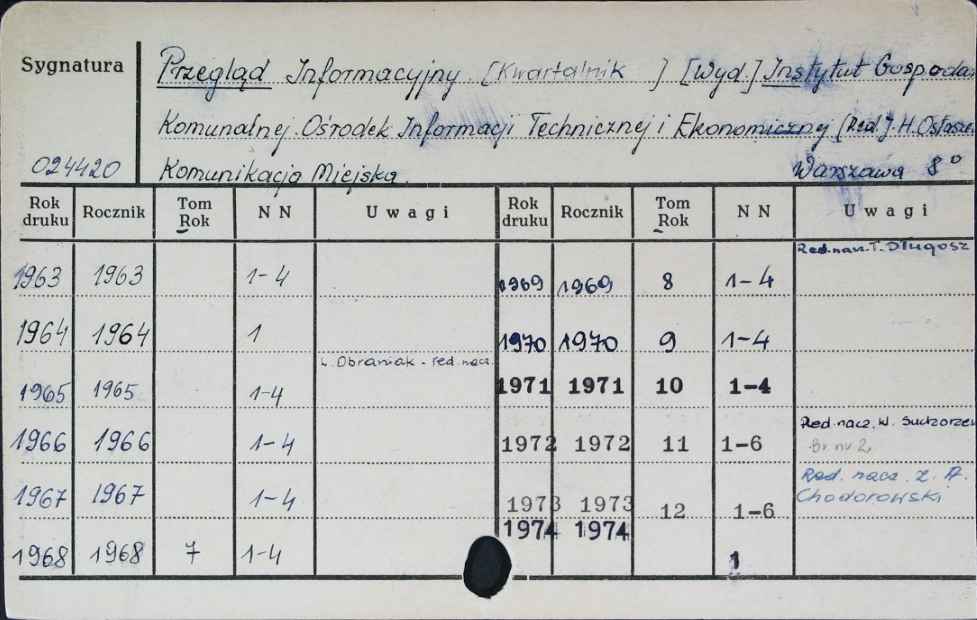 Sygnatura
Przegląd Informacyjny [Kwartalnik ] [Wyd.] Instytut Gospodar
Komunalnej. Ośrodek Informacji Technicznej i Ekonomicznej [Red.] H. Ostasze
024420 Komunikacja Miejska. Warszawa 8°
Rok druku Rocznik Tom Rok NN Uwagi Rok druku Rocznik Tom Rok NN Uwagi
Red. nacz. T. Długosz
1963 1963 1-4 1969 1969 8 1-4
1964 1964 1 1970 1970 9 1-4
L. Obraniak - red. nacz.
1965 1965 1-4 1971 1971 10 1-4
Red. nacz. W. Suchorzew
1966 1966 1-4 1972 1972 11 1-6 Br nr 2
Red. nacz. Z. A.
1967 1967 1-4 1973 1973 12 1-6 Chodorowski
1974 1974
1968 1968 7 1-4 1